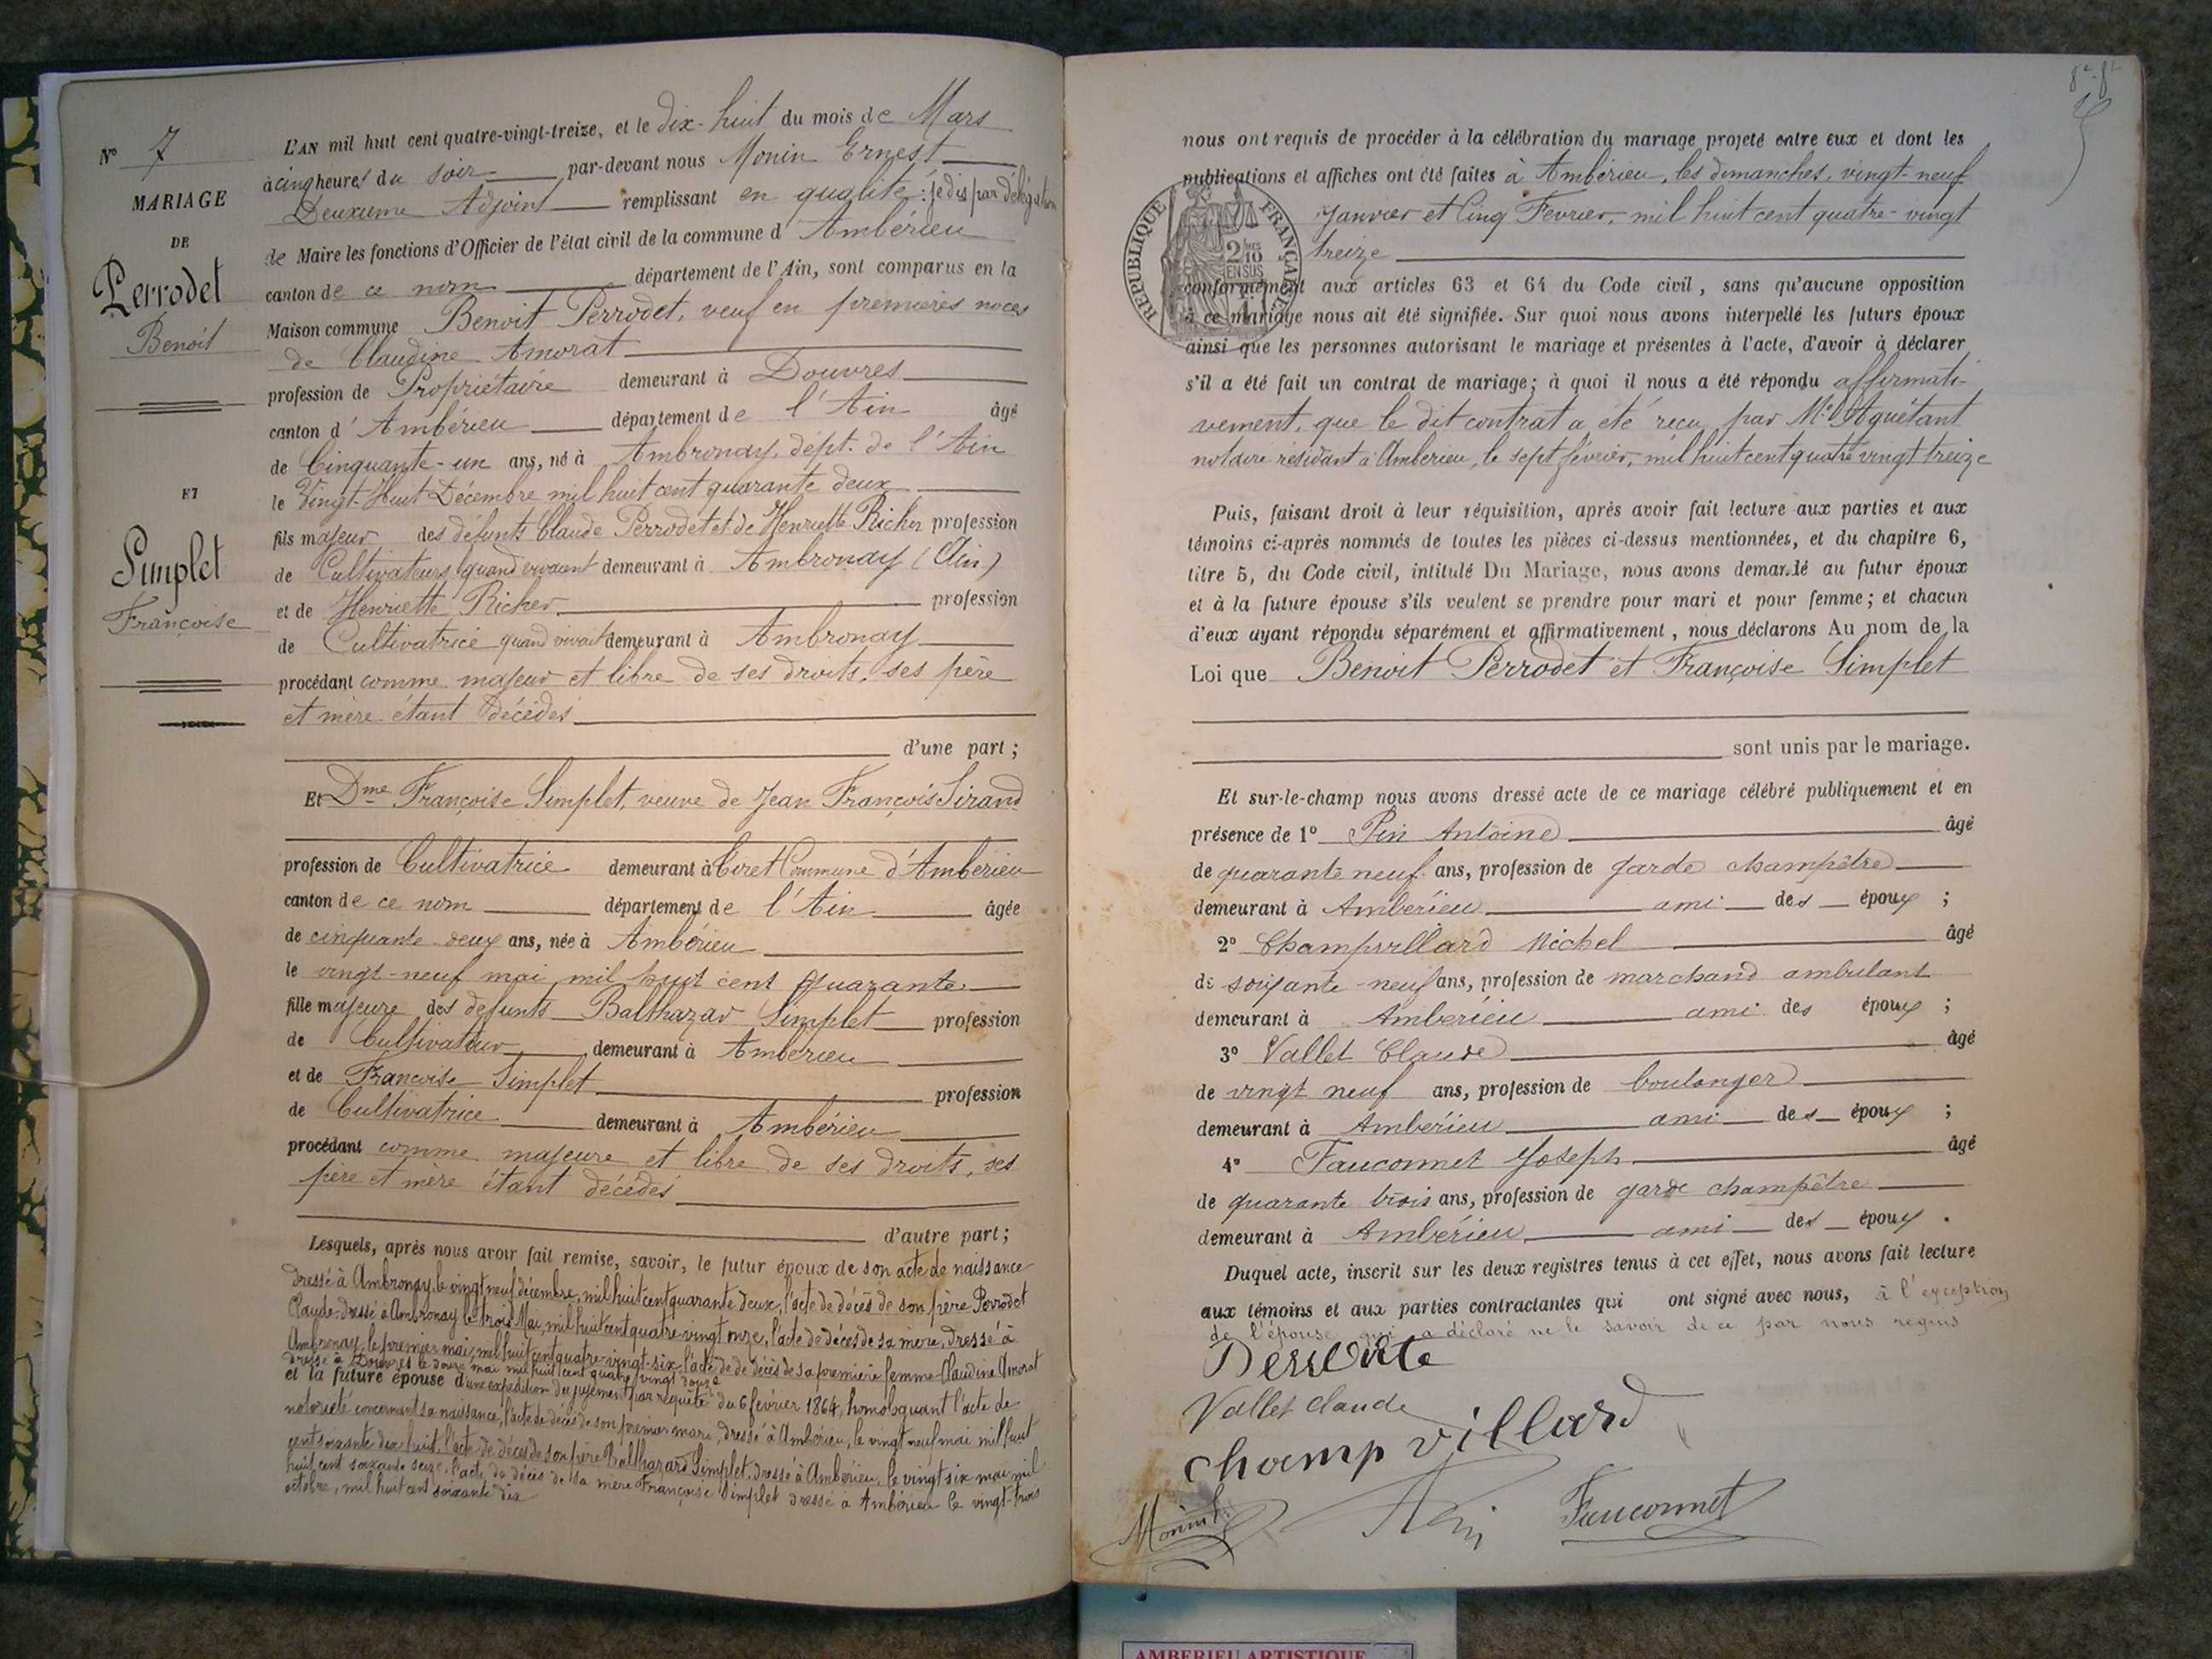 N° 7
MARIAGE
DE
Perrodet
Benoit
ET
Simplet
Françoise
L'AN mil huit cent quatre-vingt-treize, et le dix-huit du mois de Mars
à cinq heures du soir par-devant nous Monin Ernest
Deuxième Adjoint remplissant en qualité: je dis par délégation
de Maire les fonctions d'Officier de l'état civil de la commune d'Ambérieu
canton de ce nom département de l'Ain, sont comparus en la
Maison commune Benoit Perrodet, veuf en premières noces
de Claudine Amorat
profession de Propriétaire demeurant à Douvres
canton d'Ambérieu département de l'Ain âgé
de Cinquante-un ans, né à Ambronay, dépt. de l'Ain
le Vingt-Huit Décembre mil huit cent quarante deux
fils majeur des défunts Claude Perrodet et de Henriette Richer profession
de Cultivateurs quand vivaient demeurant à Ambronay (Ain)
et de Henriette Richer profession
de Cultivatrice quand vivait demeurant à Ambronay
procédant comme majeur et libre de ses droits, ses père
et mère étant décédés
d'une part;
Et Dme Françoise Simplet, veuve de Jean François Sirand
profession de Cultivatrice demeurant à Tiret Commune d'Ambérieu
canton de ce nom département de l'Ain âgée
de cinquante deux ans, née à Ambérieu
le vingt-neuf mai mil huit cent quarante
fille majeure des défunts Balthazar Simplet profession
de Cultivateur demeurant à Ambérieu
et de Françoise Simplet profession
de Cultivatrice demeurant à Ambérieu
procédant comme majeure et libre de ses droits, ses
père et mère étant décédés
d'autre part;
Lesquels, après nous avoir fait remise, savoir, le futur époux de son acte de naissance
dressé à Ambronay, le vingt neuf décembre, mil huit cent quarante deux, l'acte de décès de son père Perrodet
Claude dressé à Ambronay le trois Mai, mil huit cent quatre-vingt onze, l'acte de décès de sa mère, dressé à
Ambronay, le premier mai, mil huit cent quatre-vingt-six, l'acte de de décès de sa première femme Claudine Amorat
dressé à Douvres le douze mai mil huit cent quatre vingt douze
et la future épouse d'une expédition du jugement par requête du 6 février 1864, homologuant l'acte de
notoriété concernant sa naissance, l'acte de décès de son premier mari, dressé à Ambérieu, le vingt neuf mai mil huit
cent soixante dix huit, l'acte de décès de son père Balthazard Simplet, dressé à Ambérieu, le vingt six mai mil
huit cent soixante seize, l'acte de décès de sa mère Françoise Simplet dressé à Ambérieu le vingt-trois
octobre, mil huit cent soixante dix
nous ont requis de procéder à la célébration du mariage projeté entre eux et dont les
publications et affiches ont été faites à Ambérieu, les dimanches, vingt-neuf
Janvier et Cinq Février, mil huit cent quatre-vingt
treize
RÉPUBLIQUE FRANÇAISE
2/10
EN SUS
conformément aux articles 63 et 64 du Code civil, sans qu'aucune opposition
à ce mariage nous ait été signifiée. Sur quoi nous avons interpellé les futurs époux
ainsi que les personnes autorisant le mariage et présentes à l'acte, d'avoir à déclarer
s'il a été fait un contrat de mariage; à quoi il nous a été répondu affirmati-
vement, que le dit contrat a été reçu par Me Aguétant
notaire résidant à Ambérieu, le sept février, mil huit cent quatre vingt treize
Puis, faisant droit à leur réquisition, après avoir fait lecture aux parties et aux
témoins ci-après nommés de toutes les pièces ci-dessus mentionnées, et du chapitre 6,
titre 5, du Code civil, intitulé Du Mariage, nous avons demandé au futur époux
et à la future épouse s'ils veulent se prendre pour mari et pour femme; et chacun
d'eux ayant répondu séparément et affirmativement, nous déclarons Au nom de la
Loi que Benoit Perrodet et Françoise Simplet
sont unis par le mariage.
Et sur-le-champ nous avons dressé acte de ce mariage célébré publiquement et en
présence de 1° Pin Antoine âgé
de quarante neuf ans, profession de garde champêtre
demeurant à Ambérieu ami des époux ;
2° Champvillard Michel âgé
de soixante-neuf ans, profession de marchand ambulant
demeurant à Ambérieu ami des époux ;
3° Vallet Claude âgé
de vingt neuf ans, profession de boulanger
demeurant à Ambérieu ami des époux ;
4° Fauconnet Joseph âgé
de quarante trois ans, profession de garde champêtre
demeurant à Ambérieu ami des époux .
Duquel acte, inscrit sur les deux registres tenus à cet effet, nous avons fait lecture
aux témoins et aux parties contractantes qui ont signé avec nous, à l'exception
de l'épouse qui a déclaré ne le savoir de ce par nous requis
Vallet Claude
champvillard
Monin E. Fauconnet
AMBERIEU ARTISTIQUE